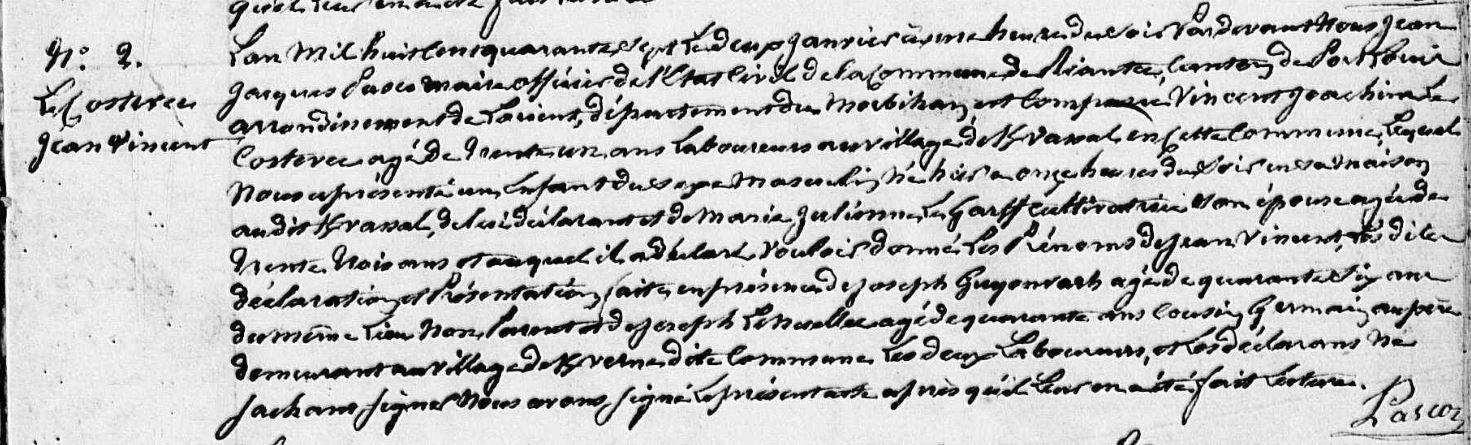 N.o 2.
Le Costevec
Jean Vincent
L'an Mil huit cent quarante sept Le deux janvier à une heure du soir Pardevant Nous Jean
Jacques Pasco maire officier de l'Etat civil de la Commune de Riantec, canton de Port Louis
arrondissement de Lorient, département du Morbihan, est Comparu Vincent Joachim Le
Costevec agé de trente un ans Laboureur au village de Kraval en cette Commune, Lequel
Nous a présenté un Enfant du sexe Masculin Né hier a onze heures du soir en sa Maison
audit Kraval, de lui déclarant et de Marie Julienne Le Garff cultivatrice son épouse agée de
trente trois ans et auquel il a déclaré vouloir donné Les Prénoms de Jean Vincent, Les dites
déclaration et Présentation faites en présence de Joseph Guyonvarh agé de quarante six ans
du même Lieu Non Parent et de Joseph agé de quarante ans cousin germain au père
demeurant au village de Kverne dite Commune Les deux Laboureurs, et Les déclarans Ne
sachant signer Nous avons signé Le présent acte après qu'il Leur en a été fait Lecture.
Pasco